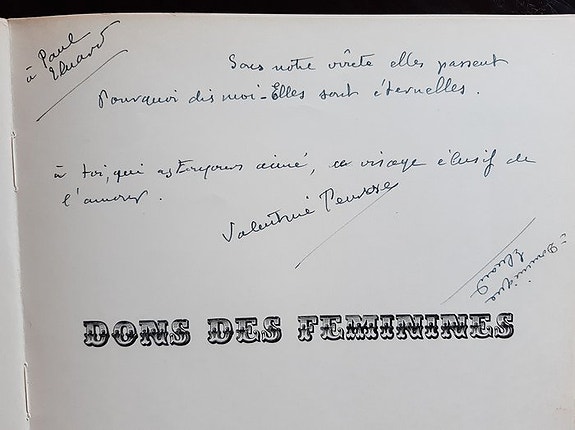 à Paul
Eluard
Sous notre vôrete elles passent
Pourquoi dis moi - Elles sont éternelles.
à toi, qui as toujours aimé, ce visage élusif de
l'amour.
Valentine Penrose
à Dominique
Eluard
DONS DES FEMININES